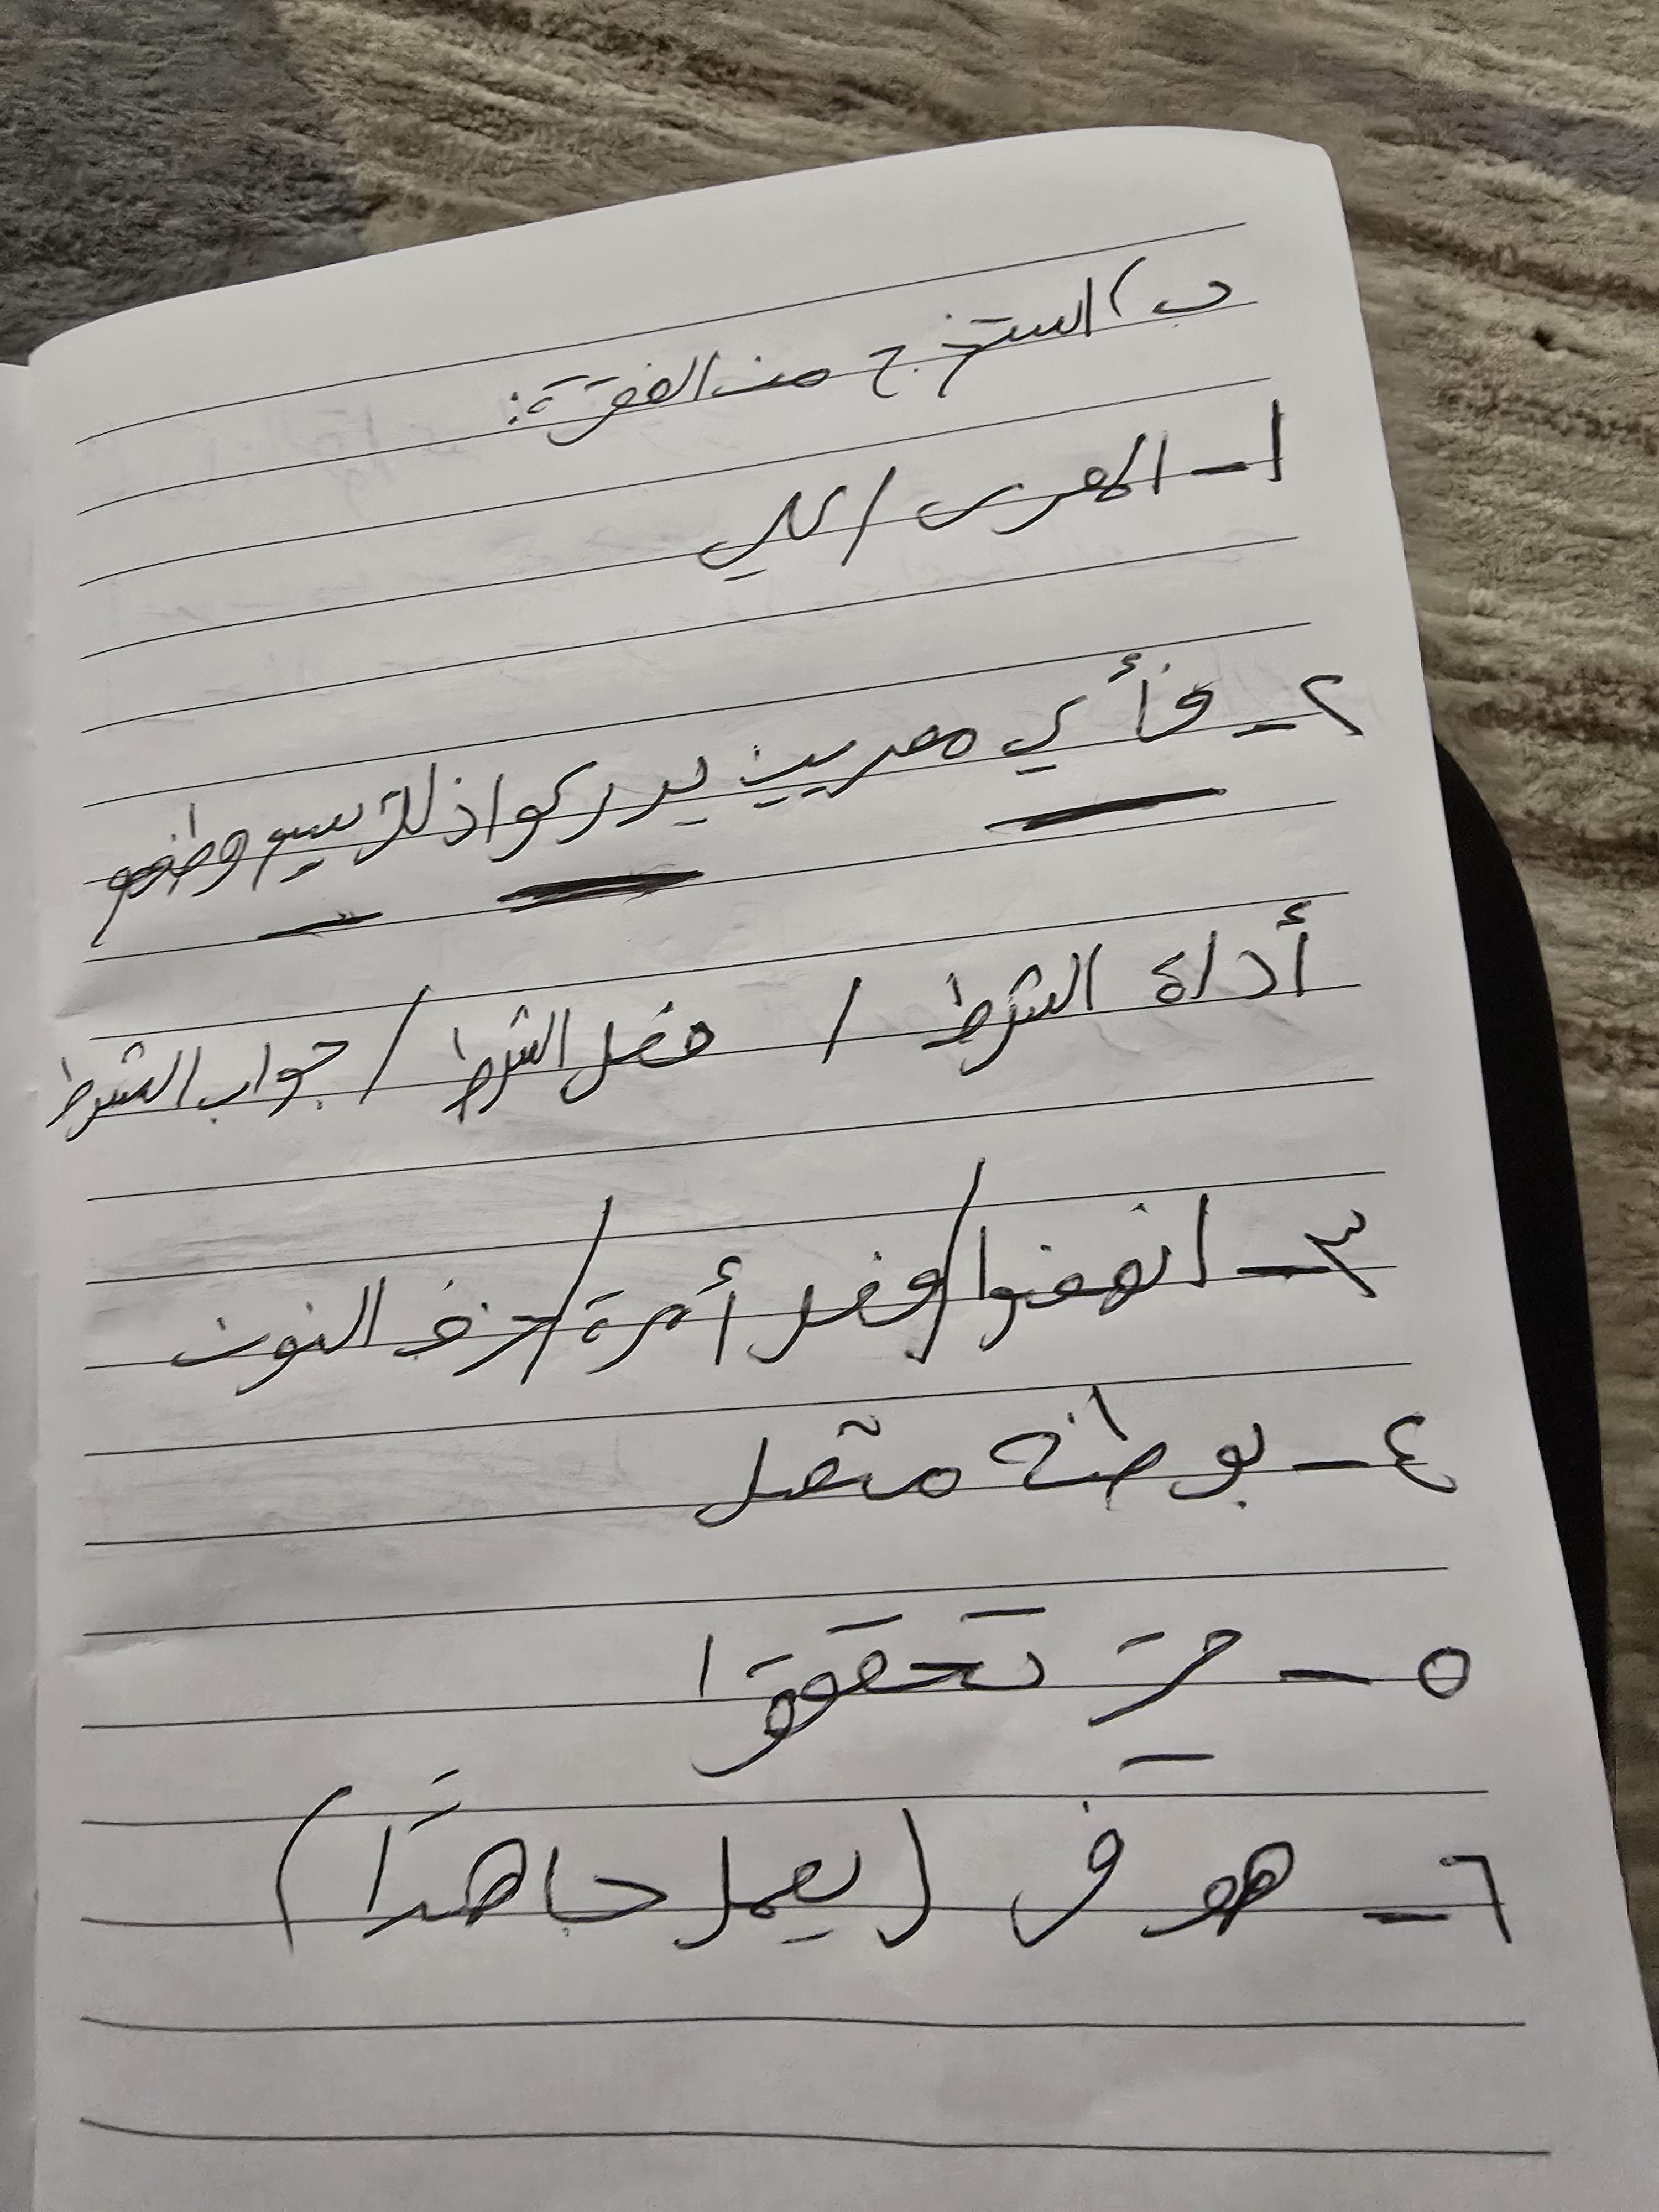 ب) استخرج من الفقرة:
١- المصرى / على
٢- فأي مصريين يدركوا ذلك يسم وطنهم
أداة الشرط / فعل الشرط / جواب الشرط
٣- انهضوا / فعل أمرة / حزف النون
٤- بوطنه متصل
٥- حتى تحققوا
٦- هو فى (يعمل جاهدًا)